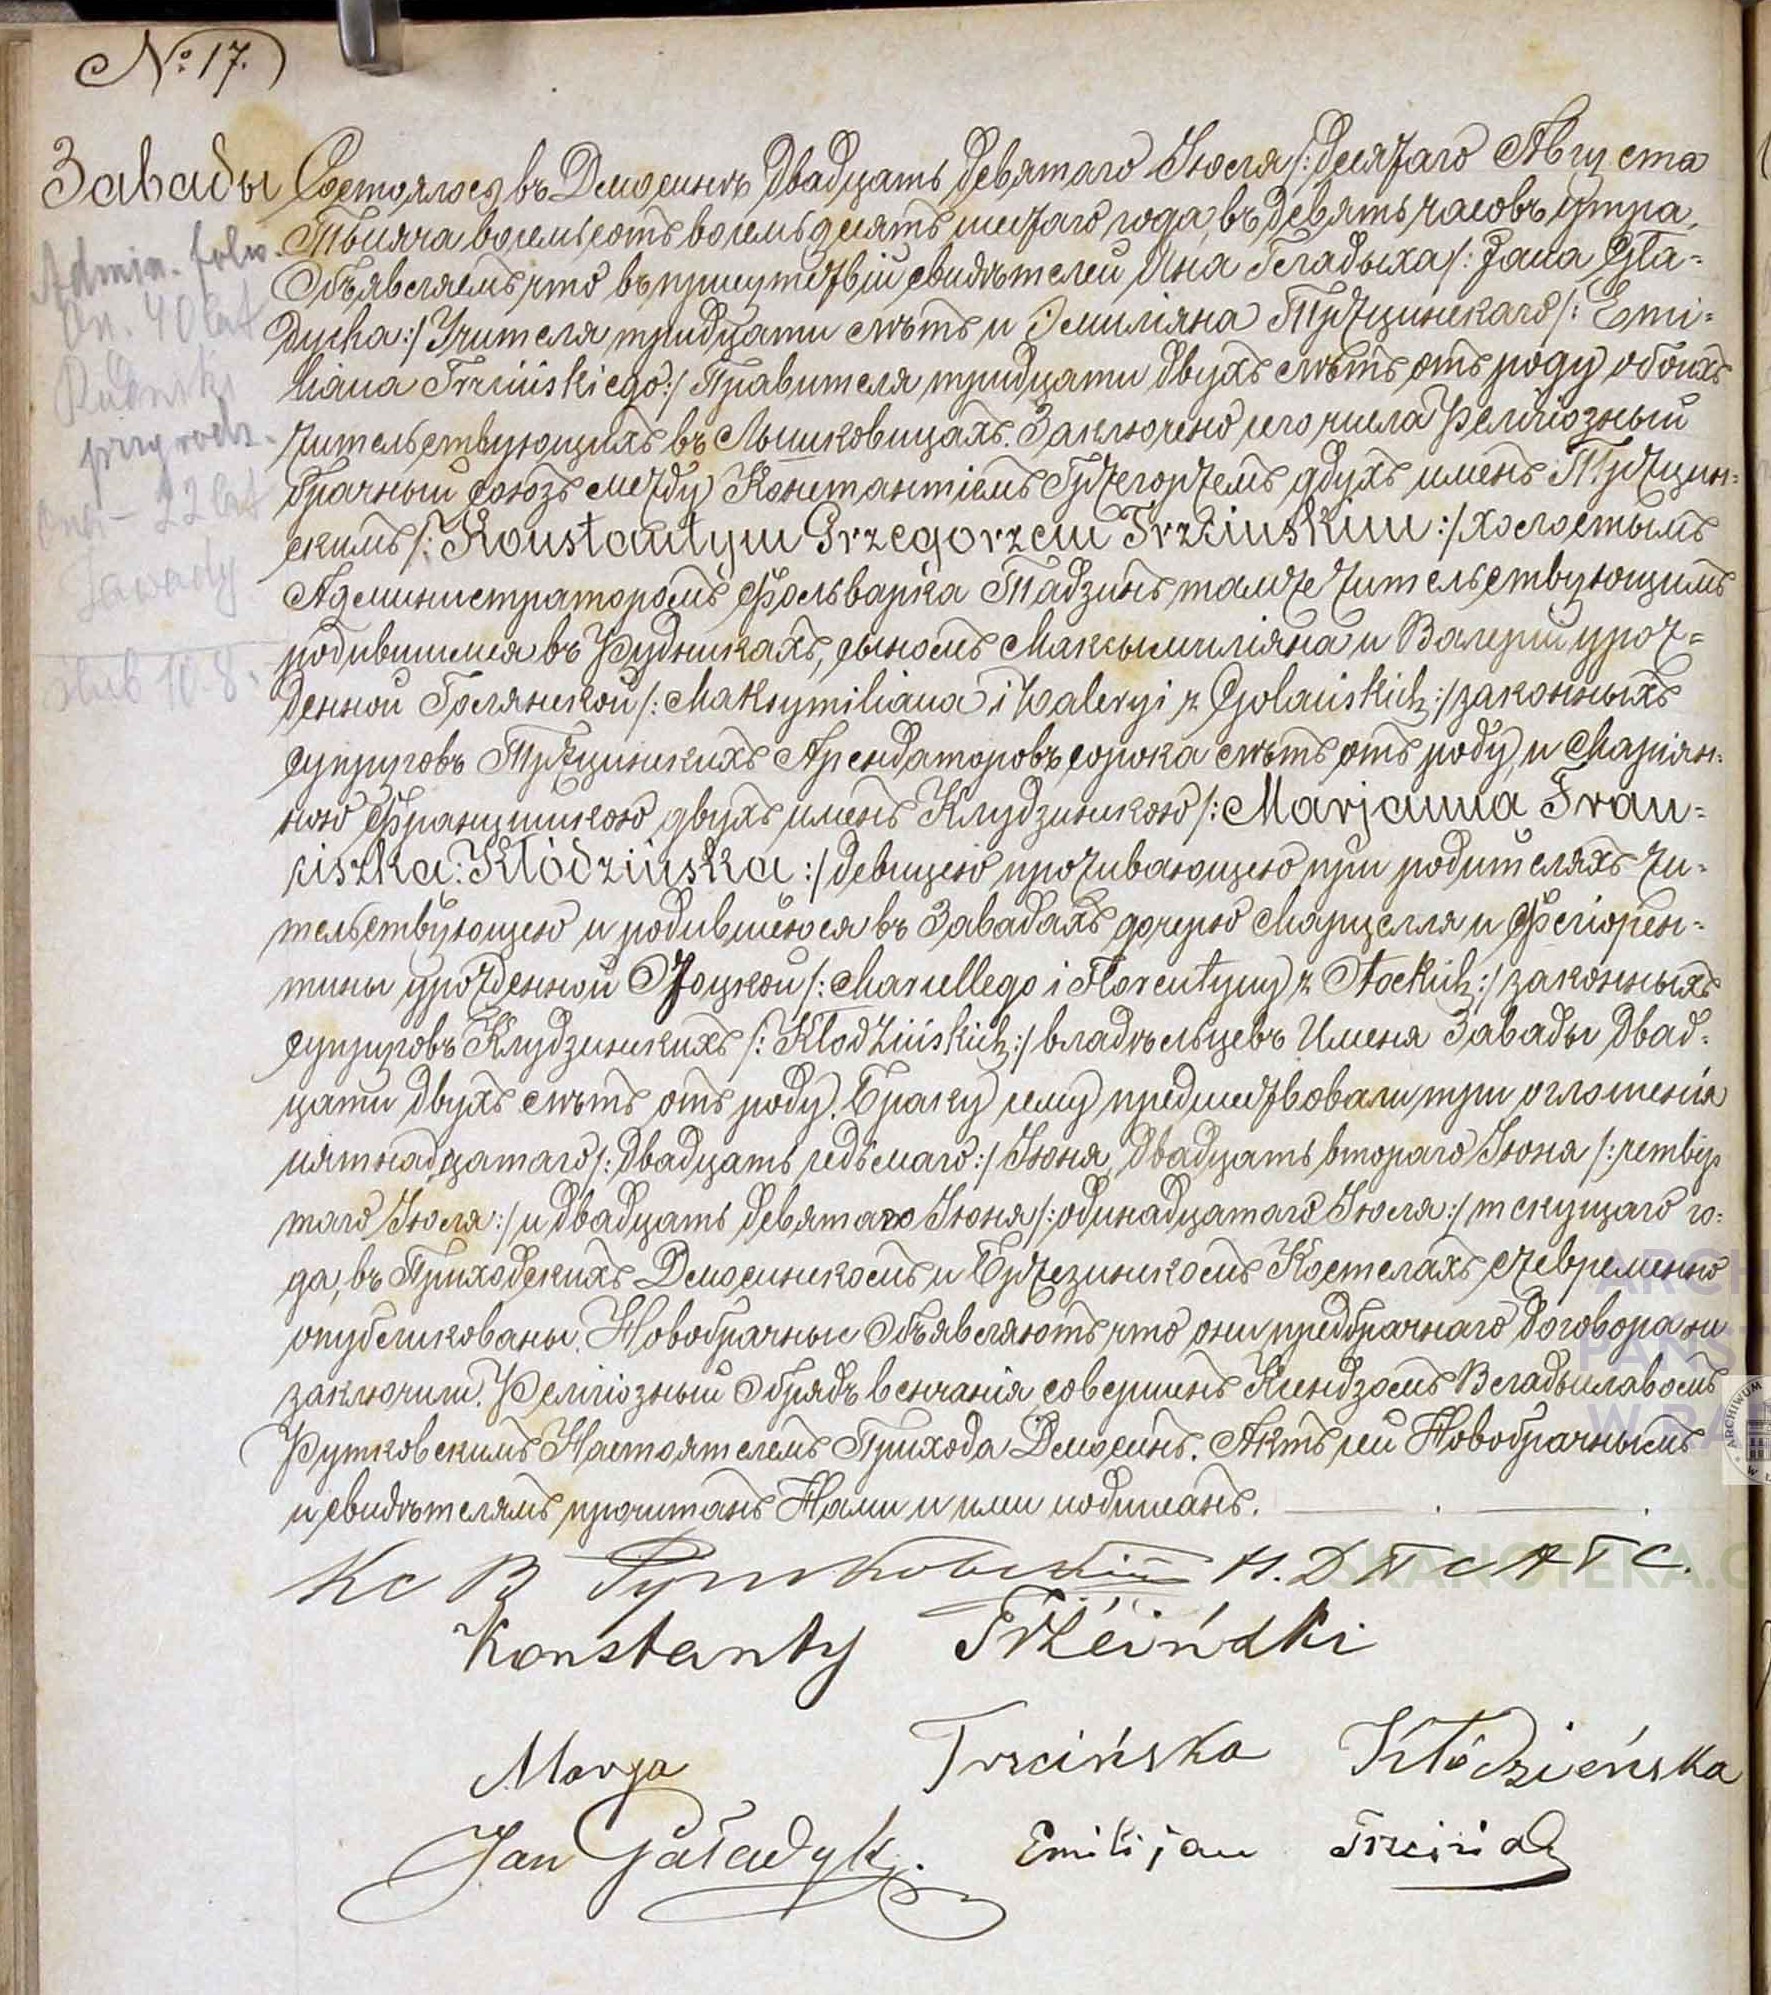 № 17.
Завады
Admin. folw.
On. 40 lat
Rudniki
przy rodz.
Ona - 22 lat
Zawady
ślub 10.8.
Состоялось въ Демосинѣ двадцать девятаго Іюля /: десятаго Августа
Тысяча восемьсотъ восемьдесятъ шестаго года, въ девять часовъ утра,
Объявляемъ, что въ присутствіи свидѣтелей Яна Гладыха /: Jana Gła-
dycha :/ Учителя тридцати лѣтъ и Эмиліяна Тржцинскаго /: Emi-
liana Trzcińskiego :/ Правителя тридцати двухъ лѣтъ отъ роду обоихъ
жительствующихъ въ Лышковицахъ. Заключено сего числа Религіозный
брачный союзъ между Константіемъ Гржегоржемъ двухъ именъ Тржцин-
скимъ /: Konstantym Grzegorzem Trzcińskim :/ холостымъ
Администраторомъ Фольварка Тадзинъ тамже жительствующимъ
родившимся въ Рудникахъ, сыномъ Максымиліяна и Валеріи урож-
денной Голянской /: Maksymiliana i Waleryi z Golańskich :/ законныхъ
супруговъ Тржцинскихъ Арендаторовъ, сорока лѣтъ отъ роду, и Маріян-
ною Францишкою двухъ именъ Клудзинскою /: Marjanna Fran-
ciszka Kłódzińska :/ девицею проживающею при родителяхъ жи-
тельствующею и родившеюся въ Завадахъ дочерью Марцелля и Флорен-
тины урожденной Стоцкой /: Marcellego i Florentyny z Stockich :/ законныхъ
супруговъ Клудзинскихъ /: Kłodzińskich :/ владѣльцевъ Именя Завады двад-
цати двухъ лѣтъ отъ роду. Браку сему предшествовали три оглошенія
пятнадцатаго /: двадцать седьмаго :/ Іюня, двадцать втораго Іюня /: четвер
таго Іюля :/ и двадцать девятаго Іюня /: одинадцатаго Іюля :/ текущаго го-
да, въ Приходскихъ Демосинскомъ и Бржезинскомъ Костелахъ своевременно
опубликованы. Новобрачные Объявляютъ, что они предбрачнаго договора не
заключили. Религіозный Обрядъ венчанія совершенъ Ксендзомъ Владыславомъ
Рутковскимъ Настоятелемъ Прихода Демосинъ. Актъ сей Новобрачнымъ
и свидѣтелямъ прочитанъ Нами и ими подписанъ.
Кс В Рутковскій Н. Д П С А Г С.
Konstanty Trzciński
Marya Trzcińska Kłódzieńska
Jan Gaładyk. Emilijan Trzciński
ARCH
PAŃST
W RA
SKANOTEKA.G
ARCHIWUM